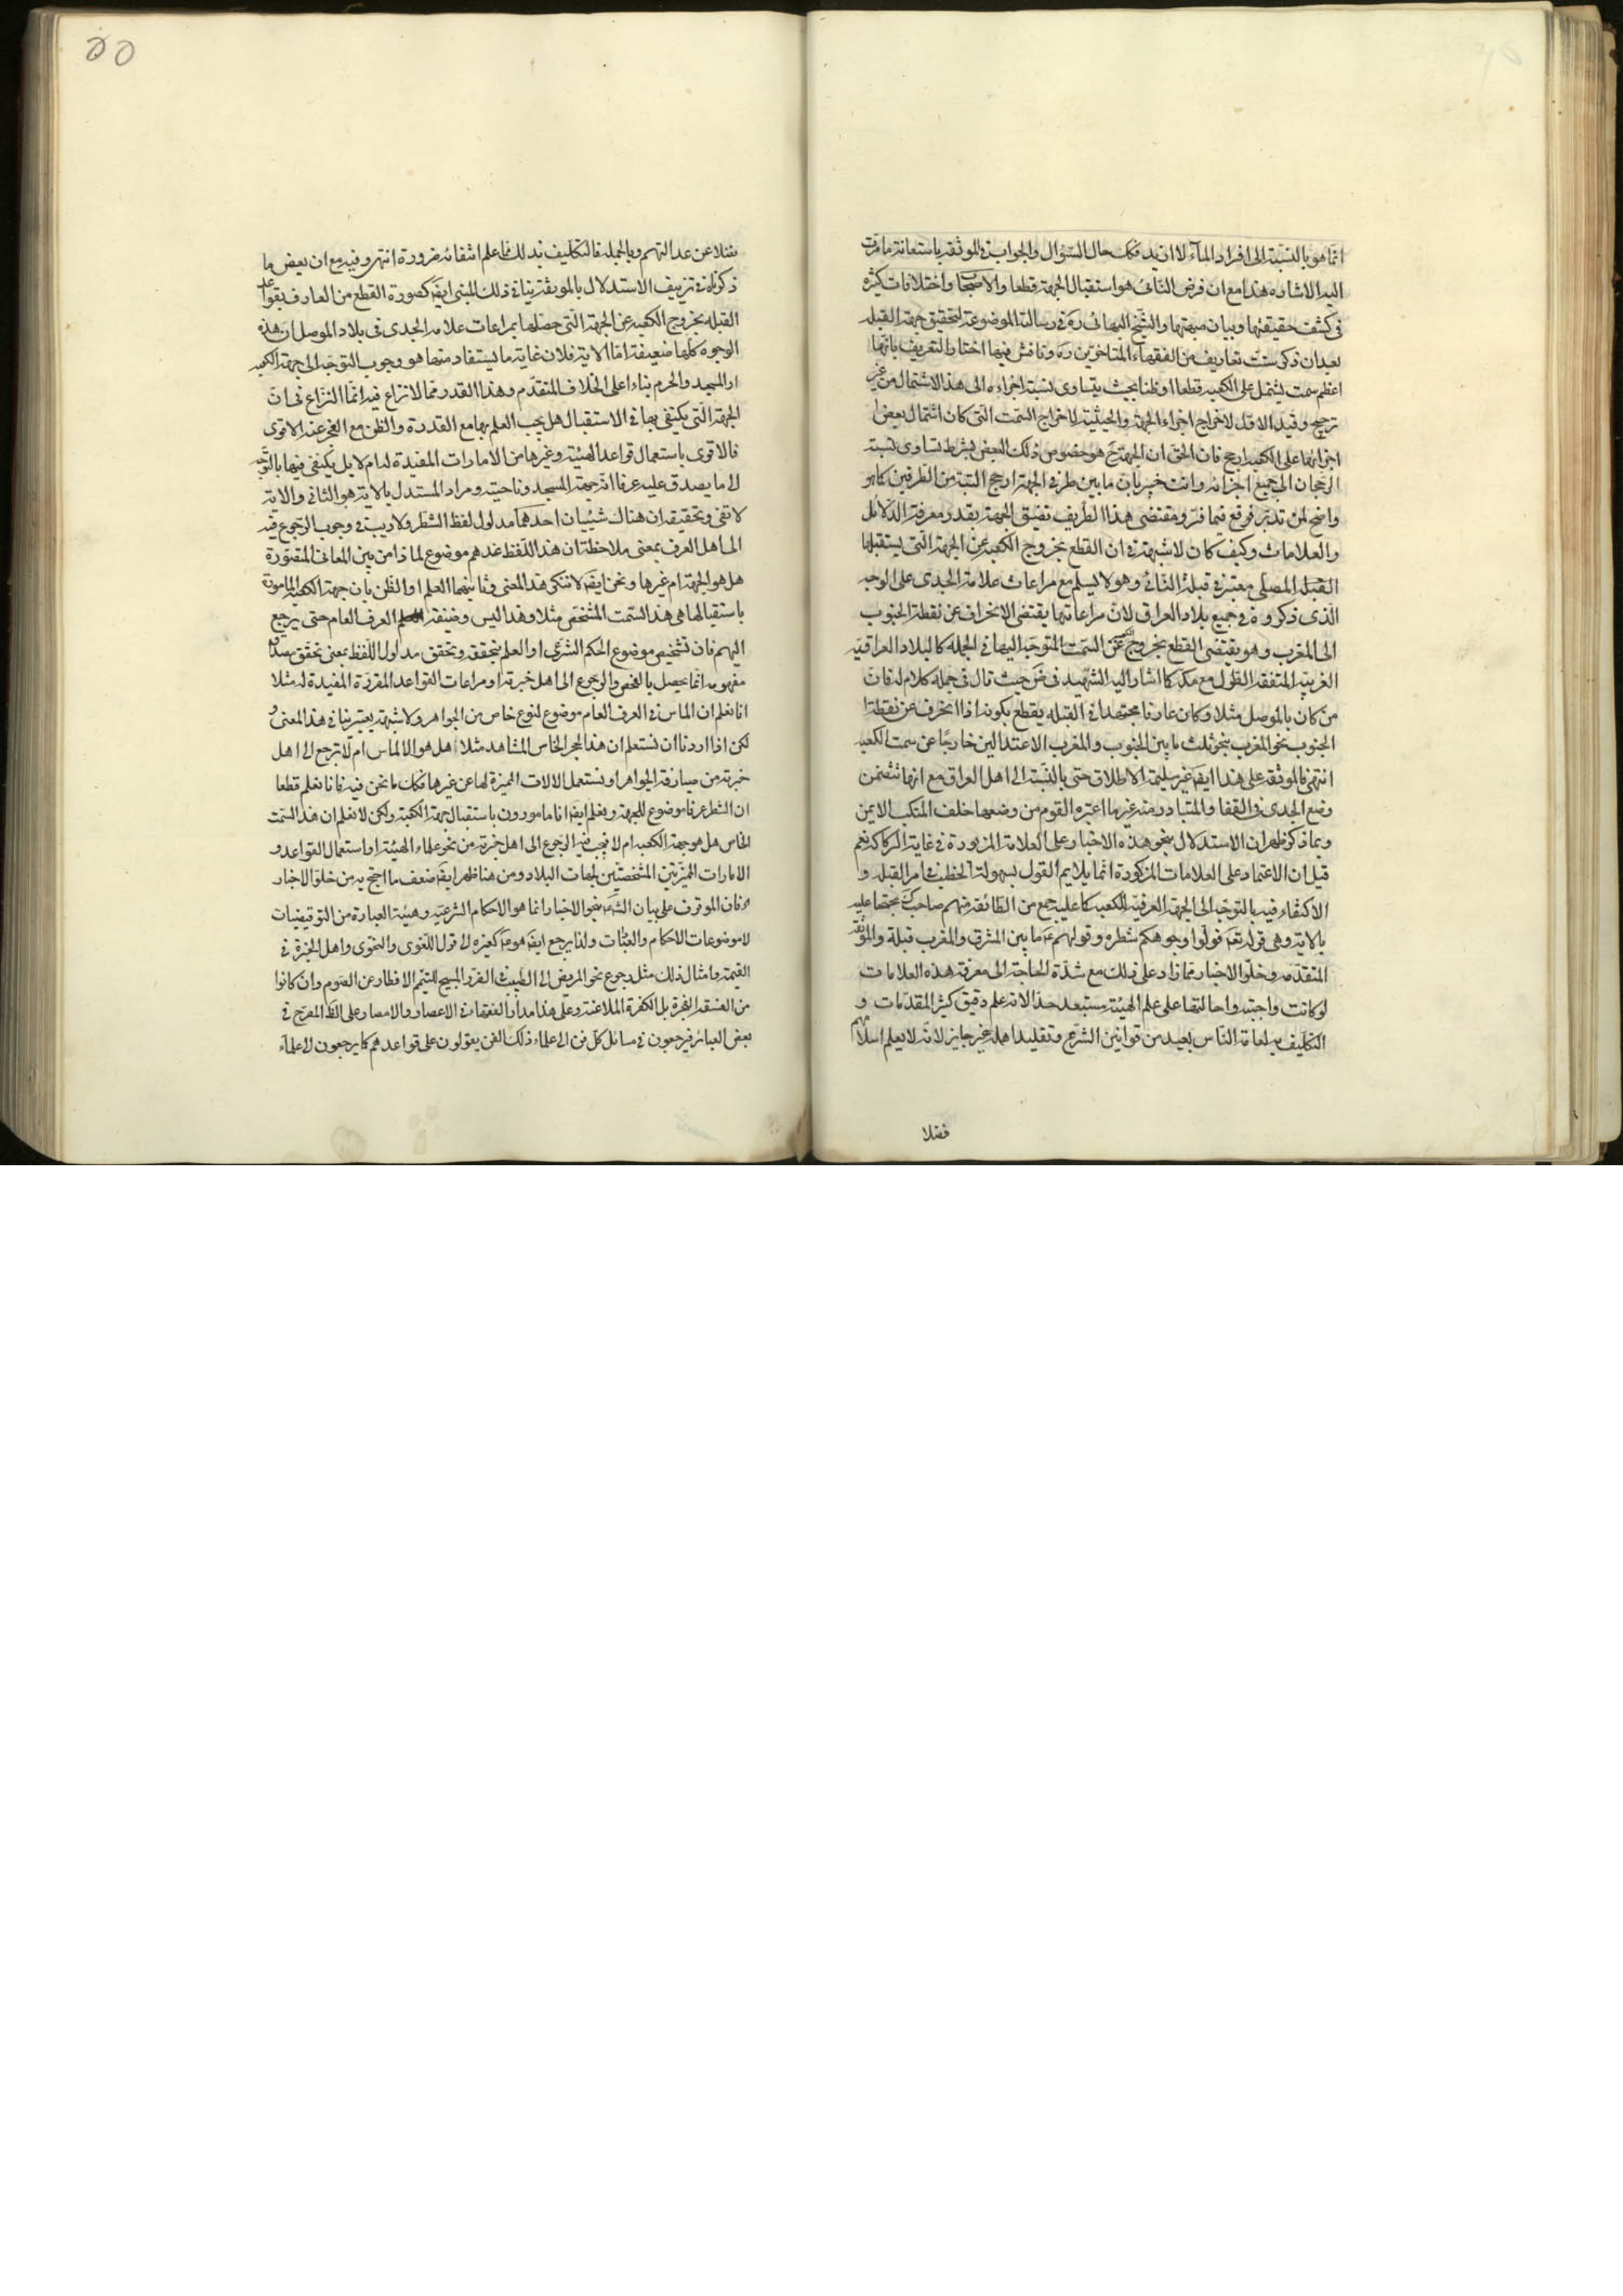 انما هو بالنسبة الى افراد الماء لا ازيد فكك حال السؤال والجواب فى الموثقة باستعانة ما مرت
اليه الاشارة هذا مع ان فرض النائى هو استقبال الجهة قطعا والاصحاب اختلافات كثيرة
فى كشف حقيقتها وبيان مهيتها والشيخ البهائى ره فى رسالة الموضوعة لتحقيق جهة القبلة
بعد ان ذكر ست تعاريف من الفقهاء المتاخرين ره وناقش فيها اختار التعريف بانها
اعظم سمت يشتمل على الكعبة قطعا او ظنا بحيث يتساوى نسبة اجزاءه الى هذا الاشتمال من غير
ترجيح وقيد الاول لاخراج اجزاء الجهة والحيثية لاخراج السمت التى كان اشتمال بعض
اجزائها على الكعبة ارجح فان الحق ان الجهة ح هو خصوص ذلك البعض بشرط تساوى نسبة
الرجحان الى جميع اجزائه وانت خبير بان ما بين طرفى الجهة ارجح البتة من الطرفين كما هو
واضح لمن تدبر فوقع فيما فر ومقتضى هذا التعريف تضيق الجهة بقدر معرفة الدلائل
والعلامات وكيف كان لا شبهة فى ان القطع بخروج الكعبة عن الجهة التى يستقبلها
القبلة المصلى معتبر فى قبلة النائى وهو لا يسلم مع مراعات علامة الجدى على الوجه
الذى ذكروه فى جميع بلاد العراق لان مراعاتها يقتضى الانحراف عن نقطة الجنوب
الى المغرب وهو يقتضى القطع بخروج عن السمت المتوجه اليها فى الجملة كالبلاد العراقية
الغربية المتفقة الطول مع مكة كما اشار اليه الشهيد فى ض حيث قال فى جملة كلام له فان
من كان بالموصل مثلا وكان عارفا مجتهدا فى القبلة يقطع بكونه اذا انحرف عن نقطة
الجنوب نحو المغرب بنحو ثلث ما بين الجنوب والمغرب الاعتدالين خارجا عن سمت الكعبة
انتهى فالموثقة على هذا ايضا غير سليمة الاطلاق حتى بالنسبة الى اهل العراق مع انها تتضمن
وضع الجدى فى القفا والمتبادر منه غير ما اعتبره القوم من وضعها خلف المنكب الايمن
وبما ذكر ظهر ان الاستدلال بنحو هذه الاخبار على العلامة المزبورة فى غاية الركاكة نعم
قيل ان الاعتماد على العلامات المذكورة انما يلايم القول بسهولة الخطب فى امر القبلة و
الاكتفاء فيه بالتوجه الى الجهة العرفية للكعبة كما عليه جمع من الطائفة منهم صاحب ك محتجا عليه
بالاية وهى قوله تعه فولوا وجوهكم شطره وقولهم ع ما بين المشرق والمغرب قبلة والموثقة
المتقدمة وخلو الاخبار مما زاد على ذلك مع شدة الحاجة الى معرفة هذه العلامات
لو كانت واجبة واحالتها على علم الهيئة مستبعد جدا لانه علم دقيق كثير المقدمات و
التكليف به لعامة الناس بعيد من قوانين الشرع وتقليد اهله غير جايز لانه لا يعلم اسلامهم
فضلا
فضلا عن عدالتهم وبالجملة فالتكليف بذلك مما علم انتفائه ضرورة انتهى وفيه مع ان بعض ما
ذكرناه فى تزييف الاستدلال بالموثقة ينافى ذلك المبنى ايضا كصورة القطع من العارف بقواعد
القبلة بخروج الكعبة عن الجهة التى حصلها بمراعات علامة الجدى فى بلاد الموصل ان هذه
الوجوه كلها ضعيفة اما الاية فلان غاية ما يستفاد منها هو وجوب التوجه الى جهة الكعبة
او المسجد والحرم بناء على الخلاف المتقدم وهذا القدر مما لا نزاع فيه انما النزاع فى ان
الجهة التى يكتفى بها فى الاستقبال هل يجب العلم بها مع القدرة والظن مع العجز عنه الاقوى
فالاقوى باستعمال قواعد الهيئة وغيرها من الامارات المفيدة له ام لا بل يكتفى فيها بالتوجه
الى ما يصدق عليه عرفا انه جهة المسجد وناحيته ومراد المستدل بالاية هو الثانى والاية
لا تفى وتحقيقه ان هناك شيئيان احدهما مدلول لفظ الشطر ولا ريب فى وجوب الرجوع فيه
الى اهل العرف بمعنى ملاحظة ان هذا اللفظ عندهم موضوع لماذا من بين المعانى المتصورة
هل هو الجهة ام غيرها ونحن ايضا لا ننكر هذا المعنى وثانيهما العلم او الظن بان جهة الكعبة المامورة
باستقبالها هى هذا السمت المشخص مثلا وهذا ليس وظيفة العرف العام حتى يرجع
اليهم فان تشخيص موضوع الحكم الشرعى او العلم بتحققه وتحقق مدلول اللفظ بمعنى تحقق مصداق
مفهومه انما يحصل بالفحص والرجوع الى اهل خبرته او مراعات القواعد المقررة المفيدة له مثلا
انا نعلم ان الماس فى العرف العام موضوع لنوع خاص من الجواهر ولا شبهة يعترينا فى هذا المعنى و
لكن اذا اردنا ان نستعلم ان هذا الحجر الخاس المشاهد مثلا هل هو الالماس ام لا نرجع الى اهل
خبرته من صيارفة الجواهر او نستعمل الالات المميزة لها عن غيرها فكك ما نحن فيه فانا نعلم قطعا
ان الشطر عرفا موضوع للجهة ونعلم ايضا انا مامورون باستقبال جهة الكعبة ولكن لا نعلم ان هذا السمت
الخاس هل هو جهة الكعبة ام لا فيجب فيه الرجوع الى اهل خبرته من نحو علماء الهيئة او استعمال القواعد و
الامارات المميزتين المشخصتين لجهات البلاد ومن هنا ظهر ايضا ضعف ما احتج به من خلو الاخبار
فان الموقوف على بيان الشرع بنحو الاخبار انما هو الاحكام الشرعية وهيئة العبارة من التوقيفيات
لا موضوعات الاحكام والعبادات ولذا يرجع ايضا هو مع كغيره الى قول اللغوى والنحوى واهل الخبرة فى
القيمة وامثال ذلك مثل رجوع نحو المريض الى الطبيب فى الضرر المبيح للتيمم الافطار عن الصوم وان كانوا
من الفسقة الفجرة بل الكفرة الملاعنة وعلى هذا مدار الفقهاء فى الاعصار والامصار على الظ المصرح فى
بعض العبائر فيرجعون فى مسائل كل فن الى علماء ذلك الفن يعولون على قواعدهم كما يرجعون الى علماء